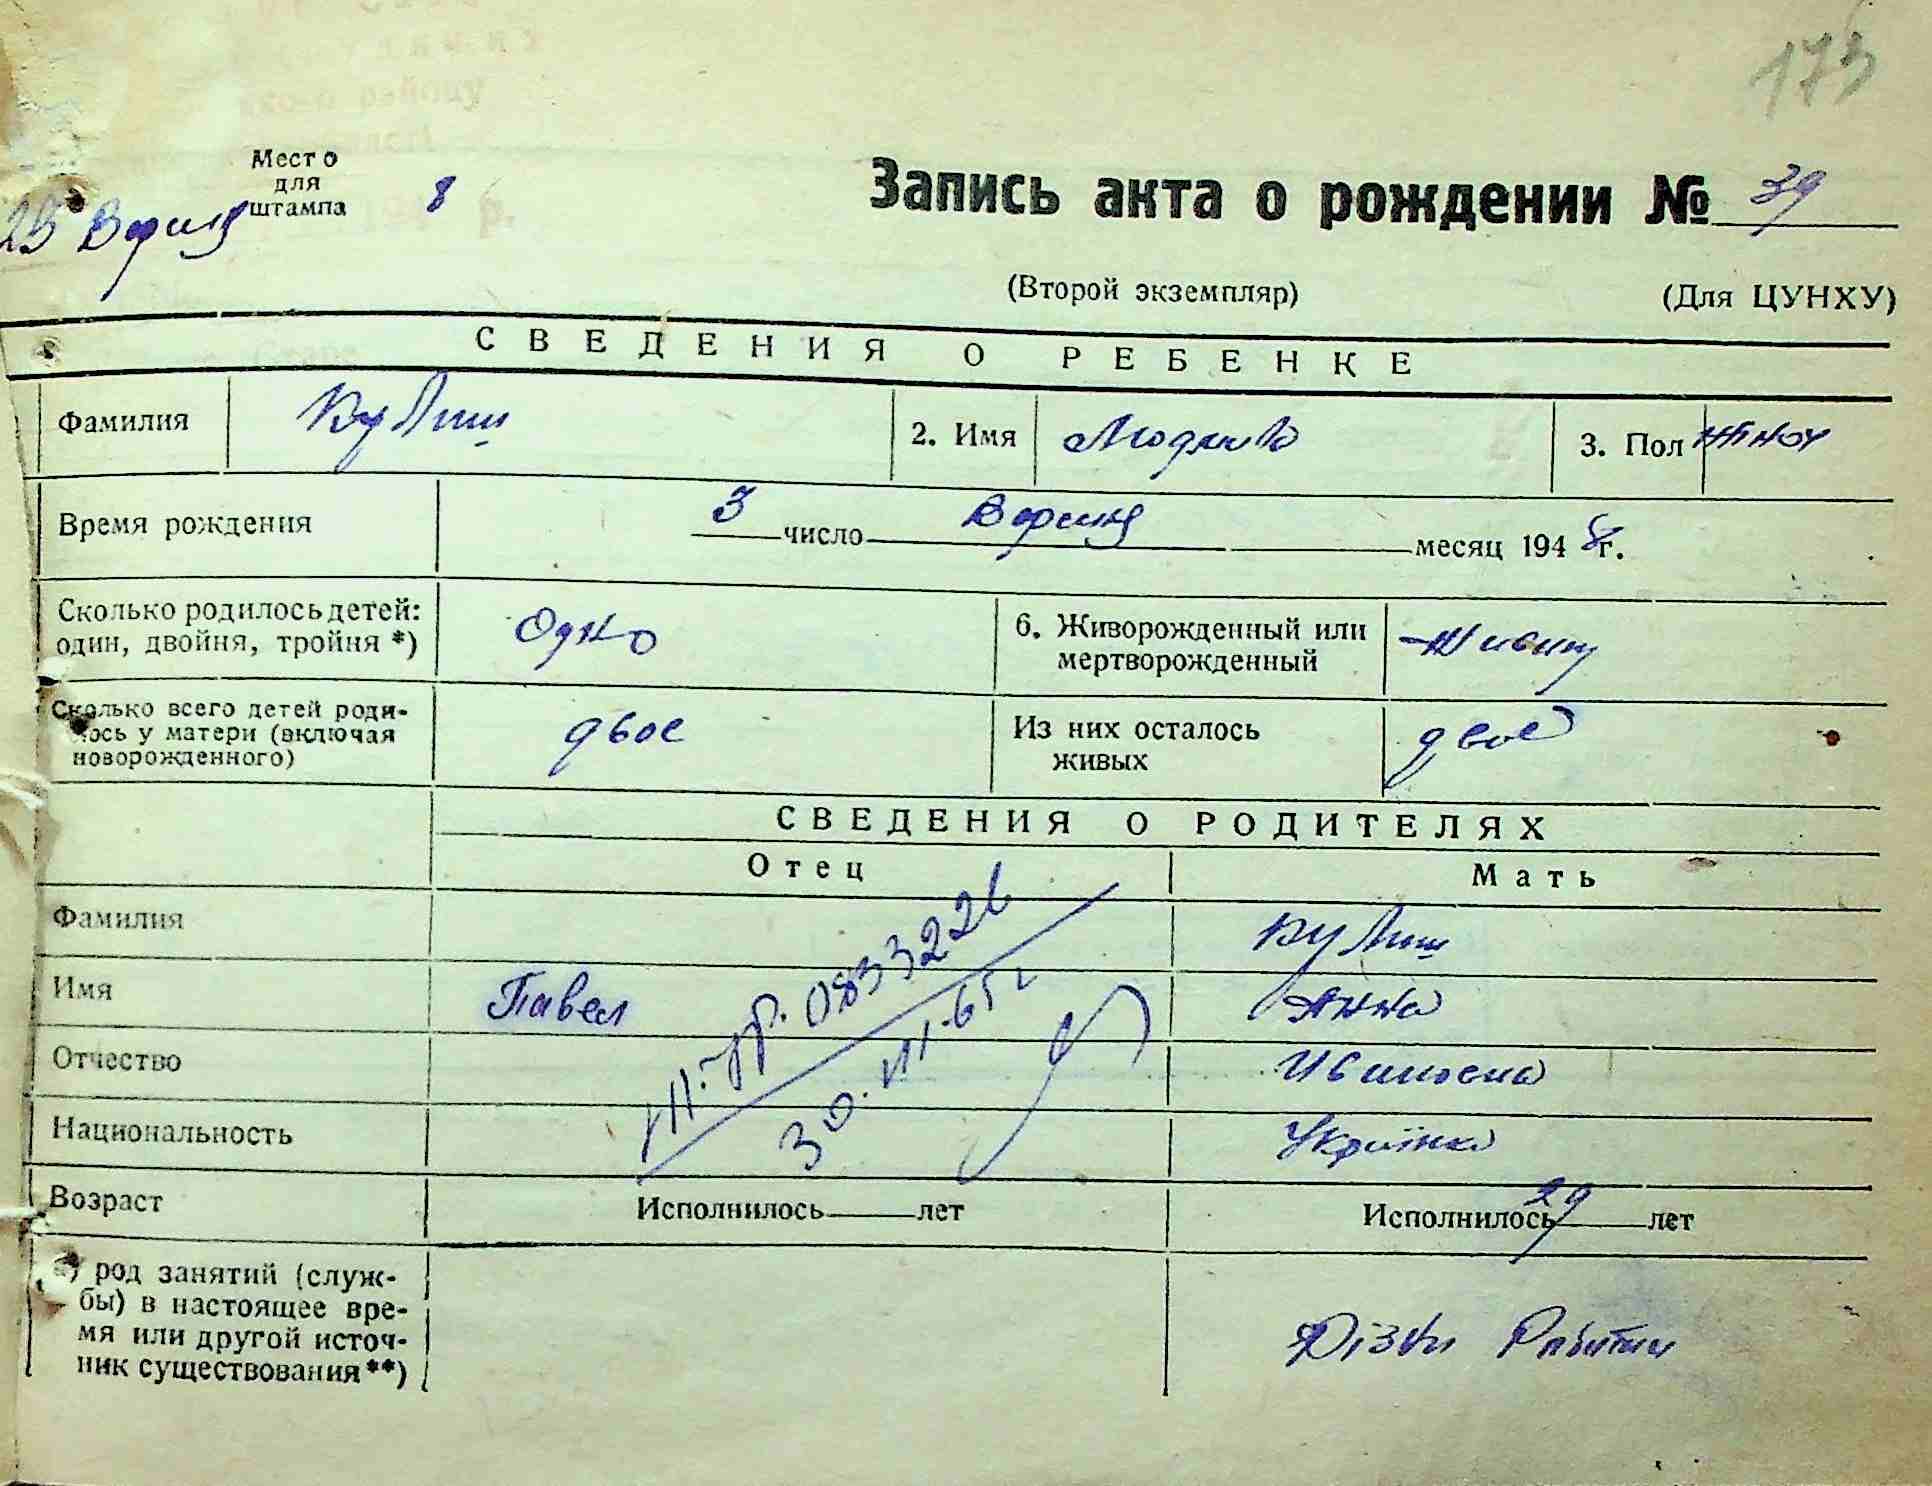 175
Место
для
штампа
25 Верця 8
Запись акта о рождении № 39
(Второй экземпляр) (Для ЦУНХУ)
СВЕДЕНИЯ О РЕБЕНКЕ
Фамилия Кулиш 2. Имя 3. Пол жіноч
Время рождения 3 число Верця месяц 1948 г.
Сколько родилось детей: Одно 6. Живорожденный или
один, двойня, тройня *) мертворожденный
Сколько всего детей роди- двое Из них осталось двое
лось у матери (включая живых
новорожденного)
СВЕДЕНИЯ О РОДИТЕЛЯХ
Отец Мать
Фамилия Кулиш
Имя Павел Анна
Отчество Ивановна
Национальность Українка
0833226
30.VII.65г
Возраст Исполнилось лет Исполнилось 29 лет
а) род занятий (служ-
бы) в настоящее вре-
мя или другой источ-
ник существования **)
Різні Работи